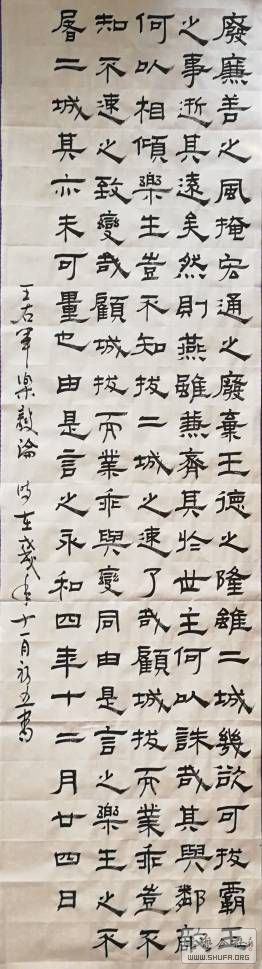 廢廉善之風掩宏通之廢棄王德之隆雖二城幾欲可拔霸王
之事逝其遠矣然則燕雖兼齊其於世主何以誅哉其與鄰敵
何以相傾樂生豈不知拔二城之速了哉顧城拔而業乖豈不
知不速之致變哉顧城拔而業乖與變同由是言之樂生之不
屠二城其亦未可量也由是言之永和四年十二月廿四日
王右軍樂毅論 時在 年十一月初五書
WWW.SHUFA.ORG